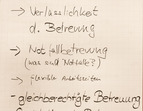 → Verlässlichkeit
d. Betreuung
→ Notfallbetreuung
(was sind Notfälle?)
→ flexible Arbeitszeiten
- gleichberechtigte Betreuung